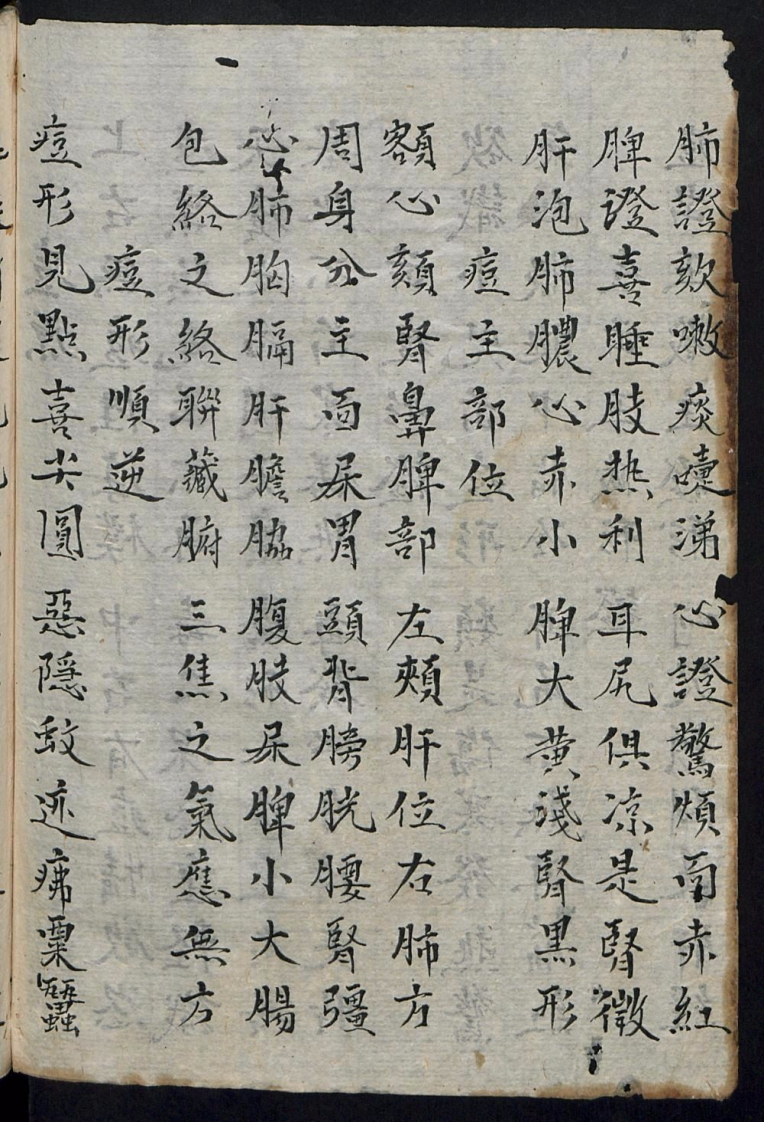 肺證欬嗽痰嚏涕心證驚煩面赤紅
脾證喜睡肢热利耳尻俱凉是腎徵
肝泡肺膿心赤小脾大黄淺腎黒形
痘主部位
額心頦腎鼻脾部左頰肝位右肺方
周身分主面屎胃頭背膀胱腰腎彊
心肺胸膈肝膽脇腹肢屎脾小大腸
包絡之絡聨藏腑三焦之氣應無方
痘形順逆
痘形見點喜尖圓惡隱蚊迹疿粟蠶